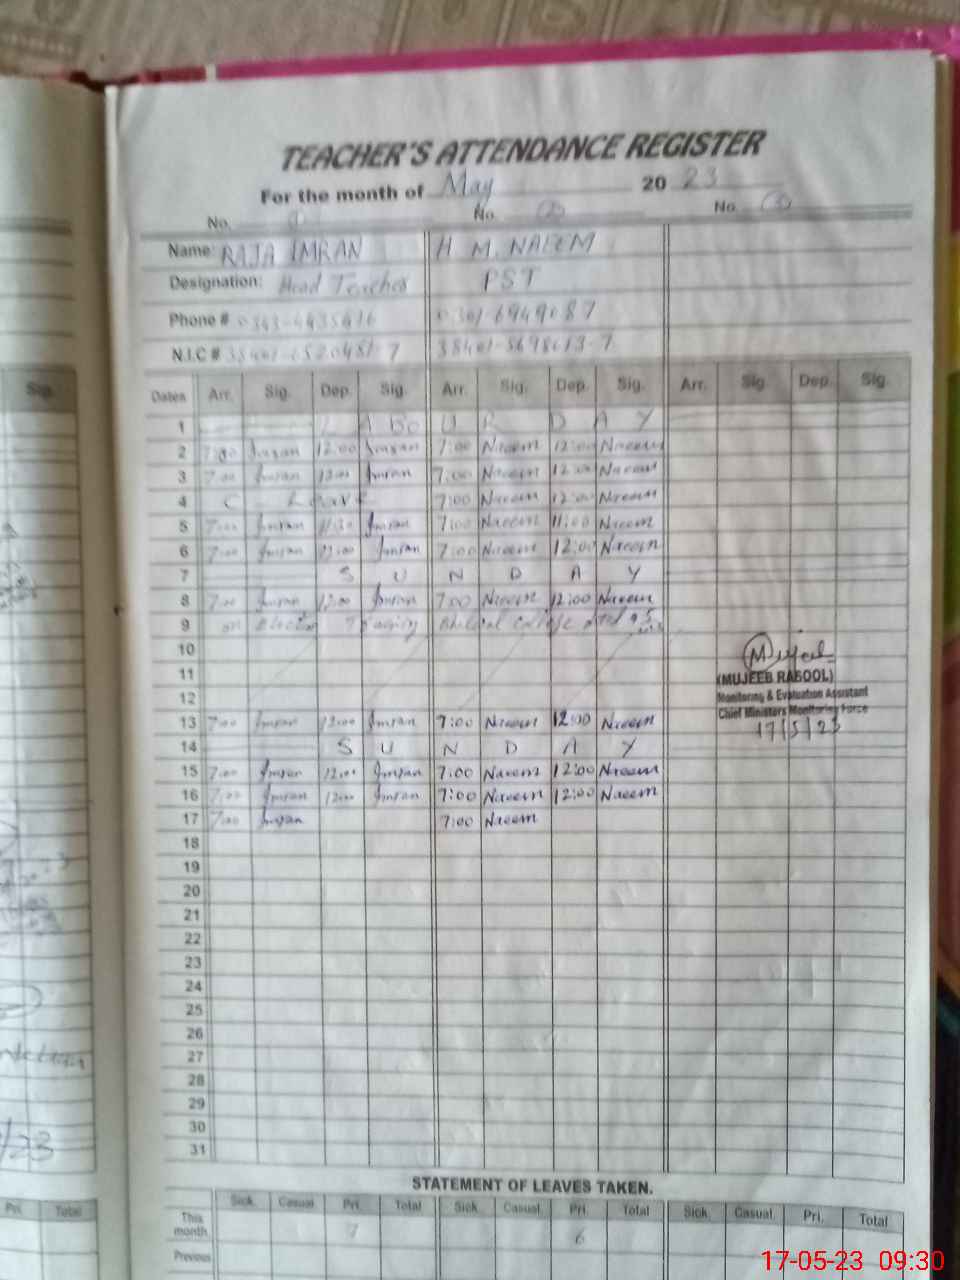 TEACHER'S ATTENDANCE REGISTER
For the month of May 2023
No. 1 No. 2 No. 3
Name: RAJA IMRAN H M. NAEEM
Designation: Head Teacher PST
Phone # 0301-6949087
N.I.C #
Dates Arr. Sig. Dep. Sig. Arr. Sig. Dep. Sig. Arr. Sig. Dep. Sig.
1 LABOUR DAY
2 7:00 Imran 12:00 Imran 7:00 Naeem 12:00 Naeem
3 7:00 Imran 12:00 Imran 7:00 Naeem 12:00 Naeem
4 C. Leave 7:00 Naeem 12:00 Naeem
5 7:00 Imran Imran 7:00 Naeem 11:00 Naeem
6 7:00 Imran 12:00 Imran 7:00 Naeem 12:00 Naeem
7 SUNDAY
8 7:00 Imran 12:00 Imran 7:00 Naeem 12:00 Naeem
9 on Election Training College
10
11
12
13 7:00 Imran 12:00 Imran 7:00 Naeem 12:00 Naeem
14 SUNDAY
15 7:00 Imran 12:00 Imran 7:00 Naeem 12:00 Naeem
16 7:00 Imran 12:00 Imran 7:00 Naeem 12:00 Naeem
17 7:00 Imran 7:00 Naeem
18
19
20
21
22
23
24
25
26
27
28
29
30
31
Mujeeb
(MUJEEB RASOOL)
Monitoring & Evaluation Assistant
Chief Ministers Monitoring Force
17/5/23
STATEMENT OF LEAVES TAKEN.
Sick. Casual. Pri. Total Sick. Casual. Pri. Total Sick. Casual. Pri. Total
This month 7 6
Previous
Sig.
/23
Pri. Total
17-05-23 09:30